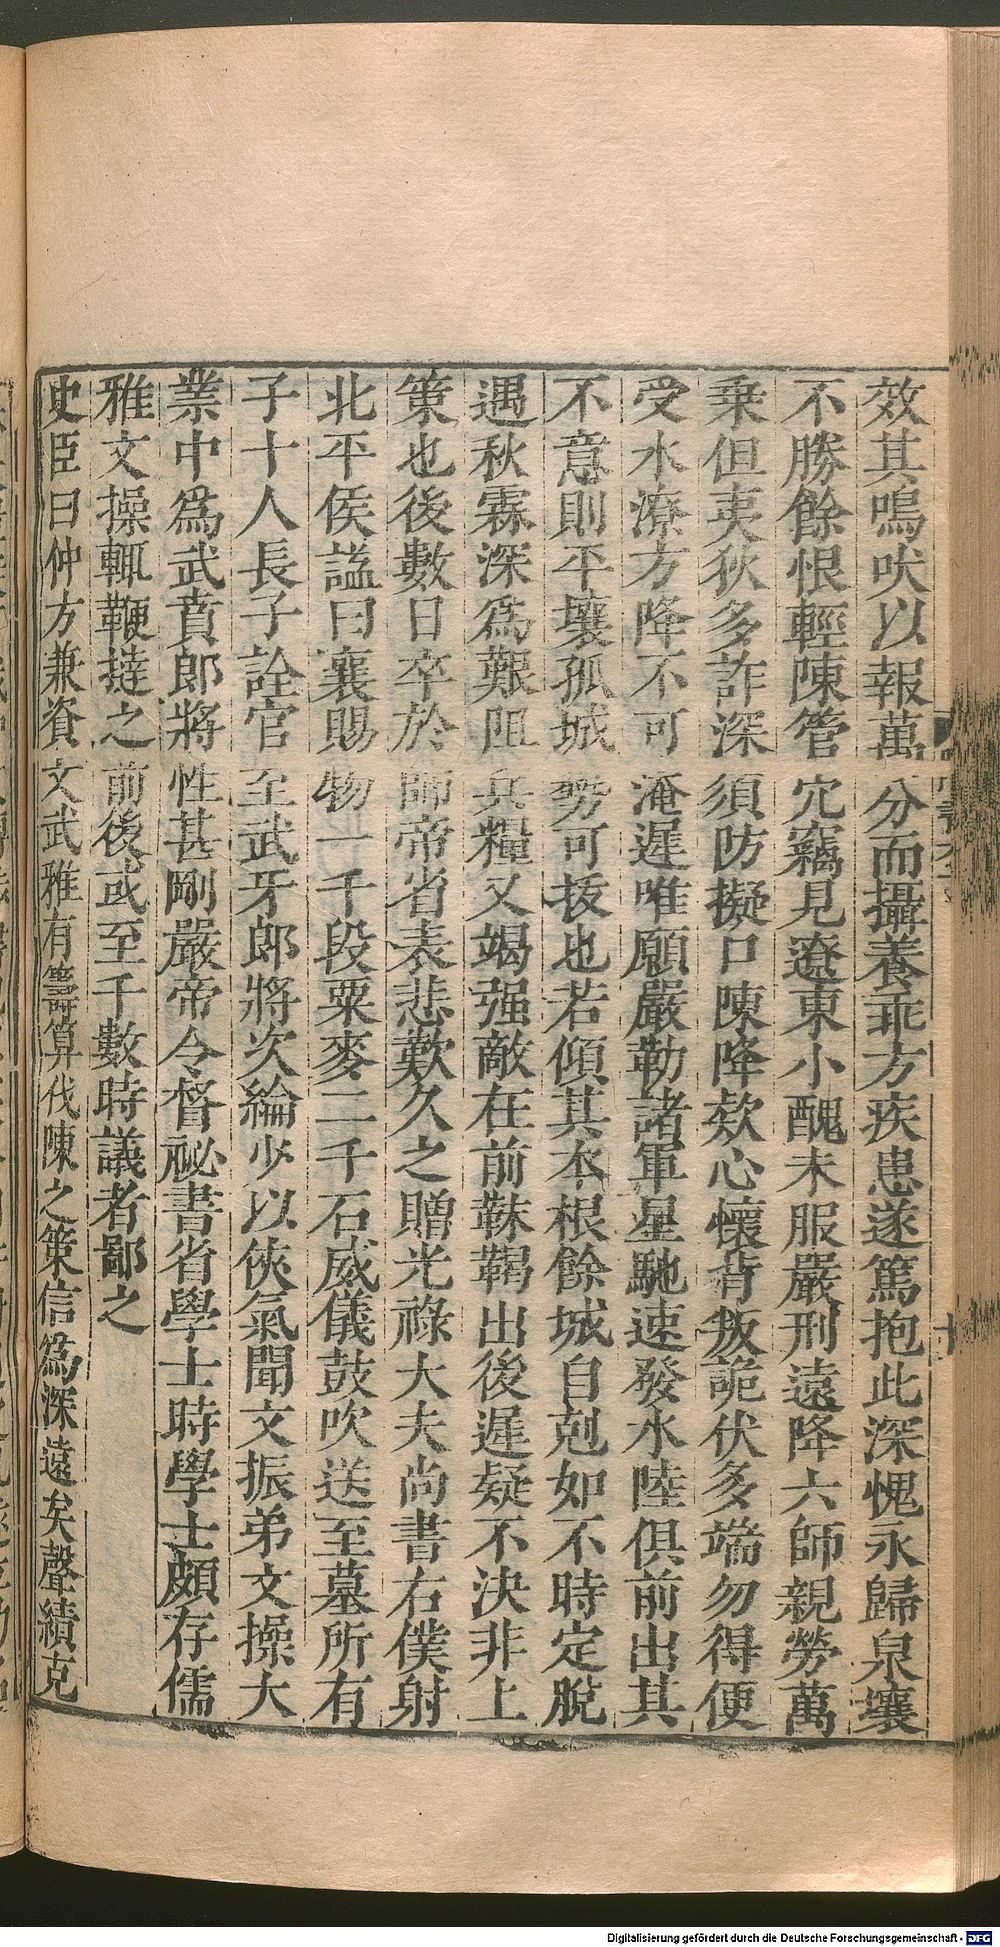 效其鳴吠以報萬分而攝養乖方疾患遂篤抱此深愧永歸泉壤
不勝餘恨輕陳管穴竊見遼東小醜未服嚴刑遠降六師親勞萬
乗但夷狄多詐深須防擬口陳降欵心懷背叛詭伏多端勿得便
受水潦方降不可淹遲唯願嚴勒諸軍星馳速發水陸俱前出其
不意則平壤孤城勢可拔也若傾其本根餘城自剋如不時定脫
遇秋霖深爲艱阻兵糧又竭强敵在前靺鞨出後遲疑不決非上
策也後數日卒於師帝省表悲歎久之贈光祿大夫尚書右僕射
北平侯諡曰襄賜物一千段粟麥二千石威儀鼓吹送至墓所有
子十人長子詮官至武牙郎將次綸少以俠氣聞文振弟文操大
業中爲武賁郎將性甚剛嚴帝令督祕書省學士時學士頗存儒
雅文操輒鞭撻之前後或至千數時議者鄙之
史臣曰仲方兼資文武雅有籌算伐陳之策信爲深遠矣聲績克
Digitalisierung gefördert durch die Deutsche Forschungsgemeinschaft - DFG